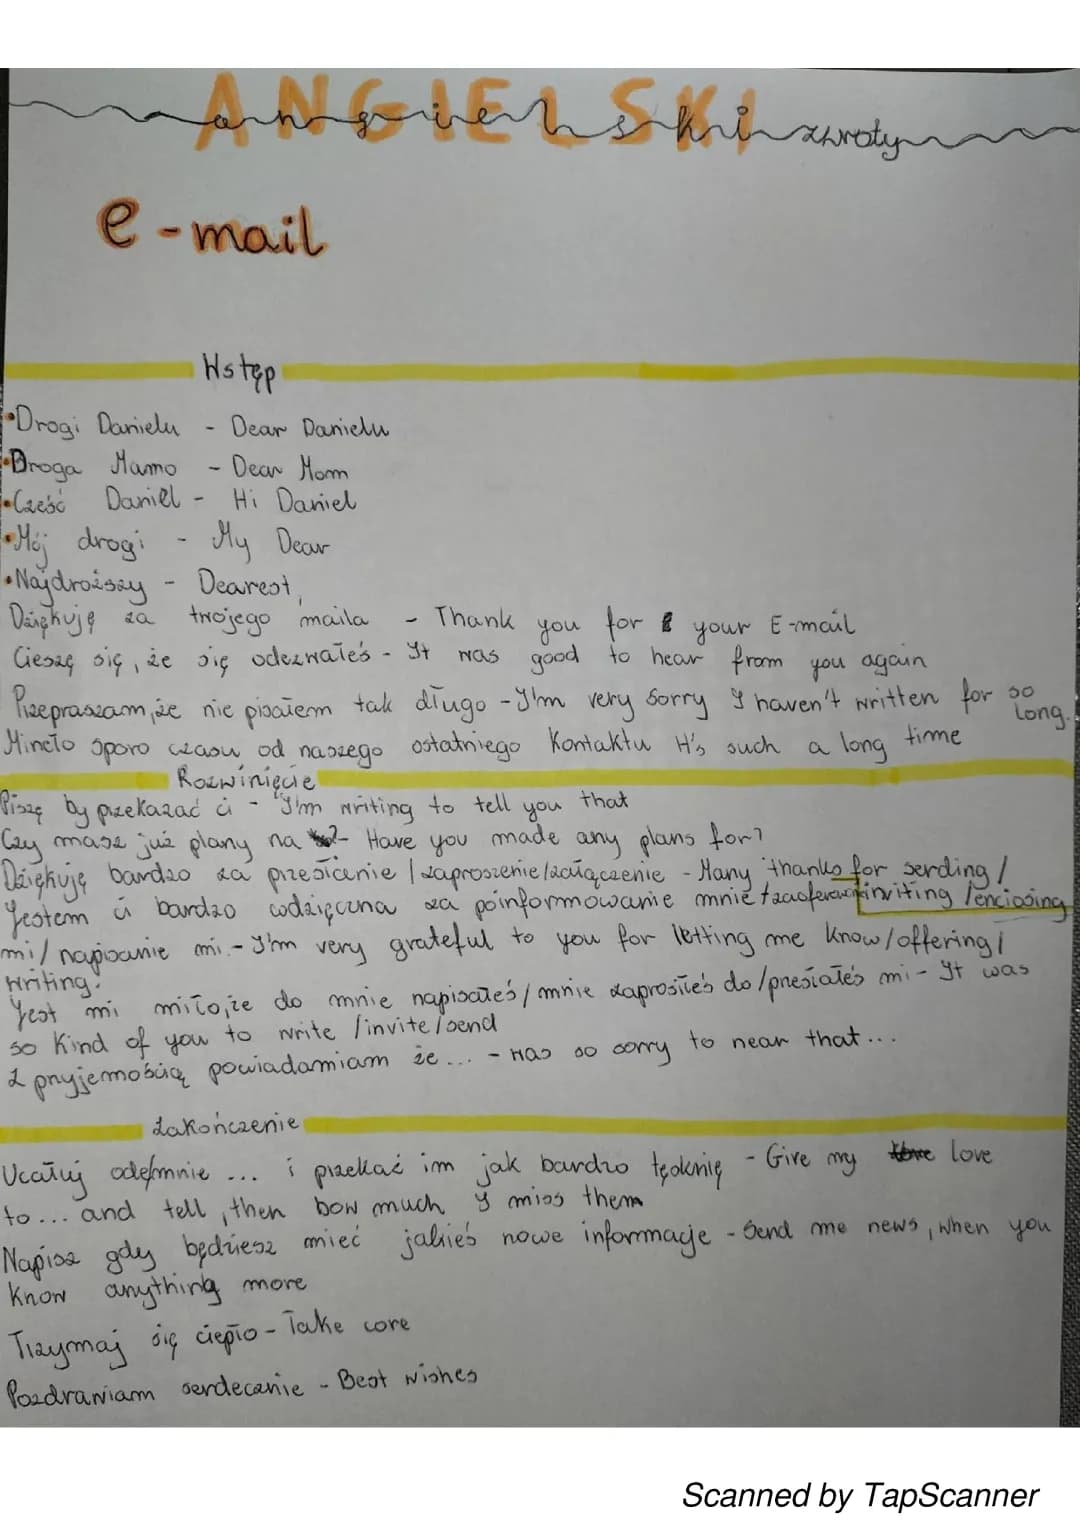 ANGIELSKI
angielski zwroty
e-mail
Wstęp
•Drogi Danielu - Dear Danielu
•Droga Mamo - Dear Mom
•Cześć Daniel - Hi Daniel
•Mój drogi - My Dear
•Najdroższy - Dearest,
Dziękuję za twojego maila - Thank you for your E-mail
Cieszę się, że się odezwałeś - It was good to hear from you again
Przepraszam, że nie pisałem tak długo - I'm very sorry I haven't written for so long.
Mineło sporo czasu od naszego ostatniego kontaktu It's such a long time
Rozwinięcie
Piszę by przekazać ci - I'm writing to tell you that
Czy masz już plany na - Have you made any plans for?
Dziękuję bardzo za przesłanie / zaproszenie / załączenie - Many thanks for serding /
Jestem ci bardzo wdzięczna za poinformowanie mnie / inviting / enciosing
mi / napisanie mi. - I'm very grateful to you for letting me know / offering /
writing.
Jest mi miło, że do mnie napisałeś / mnie zaprosiłeś do / presłałeś mi - It was
so kind of you to write / invite / send
Z pryjemością powiadamiam że... - was so sorry to near that...
Zakończenie
Ucałuj odemnie ... i przekać im jak bardzo tęsknię - Give my love
to... and tell, then bow much I miss them
Napisz gdy będziesz mieć jakieś nowe informacje - Send me news, when you
know anything more
Trzymaj się ciepło - Take core
Pozdrawiam serdecznie - Best wishes
Scanned by TapScanner